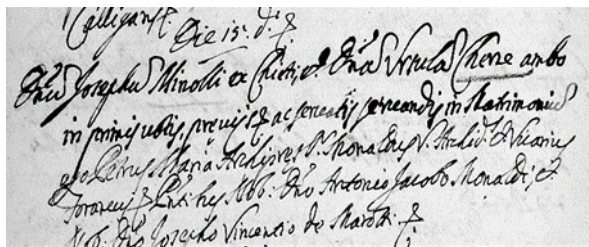 Die 15. d.
Dnu Josephu Minolli ex Chieti, et Dna Ursula Chere ambo
in primis votis, previis et ac servatis servandis in Matrimoniu
ego Petrus Maria Archipres. Monaldus V. Archid. et Vicarius
Foraneus Pntibus Nob. Dno Antonio Jacobo Monaldi, et
Nob. Dno Josepho Vincentio de Marotti